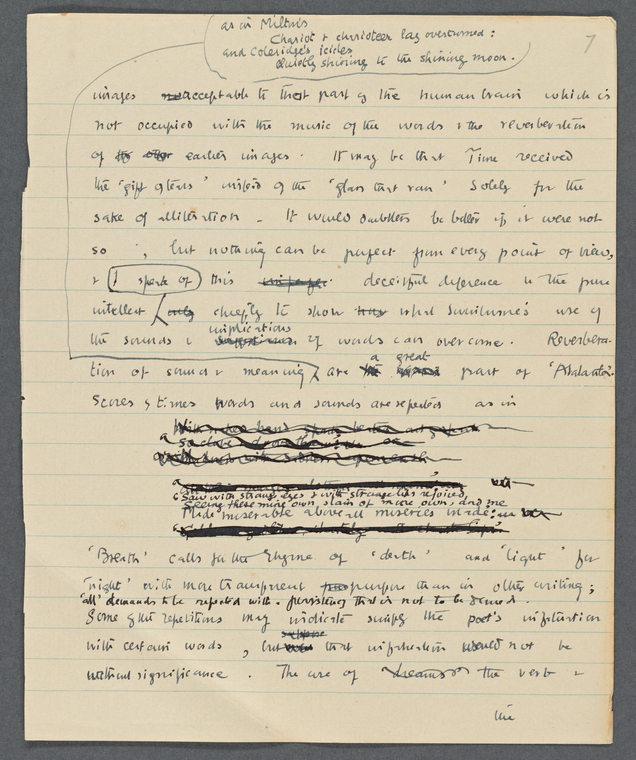 7
as in Milton's
Chariot & charioteer lay overturned:
and Coleridge's icicles
Quietly shining to the shining moon.
images acceptable to that part of the human brain which is
not occupied with the music of the words & the reverberation
of earlier images. It may be that Time received
the 'gift of tears' instead of the 'glass that ran' solely for the
sake of alliteration. It would doubtless be better if it were not
so; but nothing can be perfect from every point of view,
& I speak of this deceitful deference to the pure
intellect chiefly to show what Swinburne's use of
the sounds & implications of words can overcome. Reverbera-
tion of sound & meaning are a great part of 'Atalanta'.
Scores of times words and sounds are repeated as in
'Saw with strange eyes & with strange lips rejoiced,
Seeing these mine own slain of mine own, and me
Made miserable above all miseries made:
'Breath' calls for the rhyme of 'death' and 'light' for
'night' with more transparent purpose than in other writing;
'all' demands to be repeated with a persistency that is not to be denied.
Some of the repetitions may indicate simply the poet's infatuation
with certain words, but that infatuation would not be
without significance. The use of 'dreams' the verb &
the